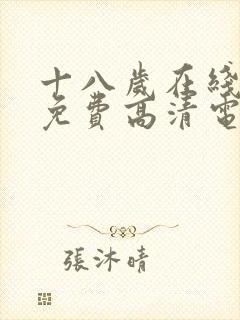 十八歲在綫
免費高清電
張沐晴